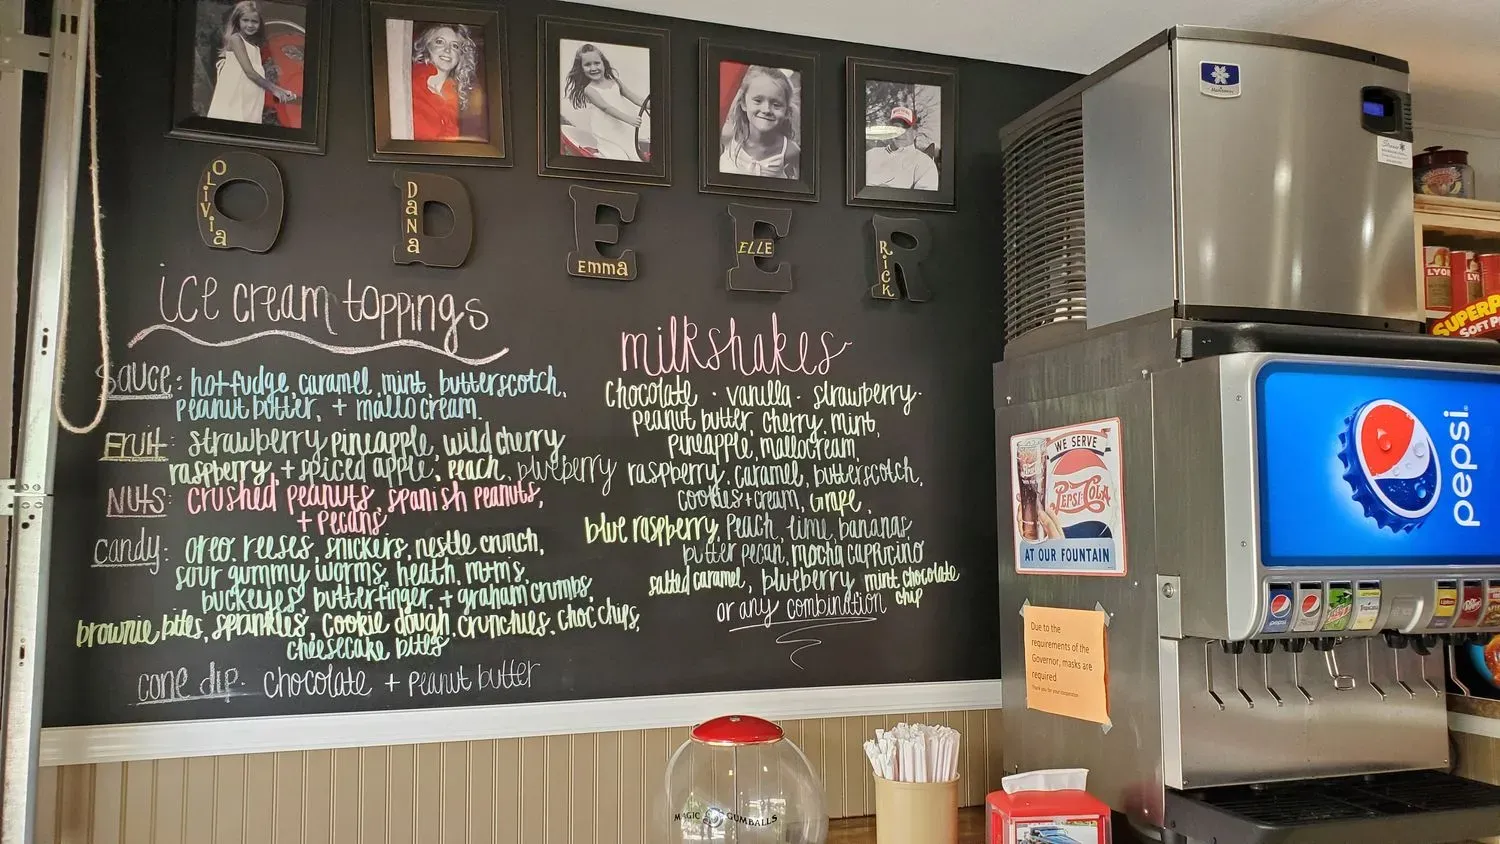 OLiViA
DANA
Emma
ELLE
RiCK
O D E E R
ice cream toppings
sauce: hot fudge, caramel, mint, butterscotch,
peanut butter, + mallocream.
FRUIT: strawberry, pineapple, wild cherry
raspberry, + spiced apple, peach, blueberry
NUTS: crushed peanuts, spanish peanuts,
+ pecans
candy: oreo, reeses, snickers, nestle crunch,
sour gummy worms, heath, m+ms,
buckeyes, butterfinger, + graham crumbs,
brownie bites, sprinkles, cookie dough, crunchies, choc chips,
cheesecake bites
cone dip: chocolate + peanut butter
milkshakes
chocolate · vanilla · strawberry ·
peanut butter, cherry, mint,
pineapple, mallocream,
raspberry, caramel, butterscotch,
cookies+cream, Grape,
blue raspberry, Peach, lime, bananas,
butter pecan, mocha capricino
salted caramel, blueberry, mint chocolate
chip
or any combination
Manitowoc
WE SERVE
PEPSI-COLA
AT OUR FOUNTAIN
Due to the
requirements of the
Governor, masks are
required
Thank you for your cooperation
LYON
LY
SUPERP
SOFT P
pepsi
pepsi
Lipton
MAGIC GUMBALLS